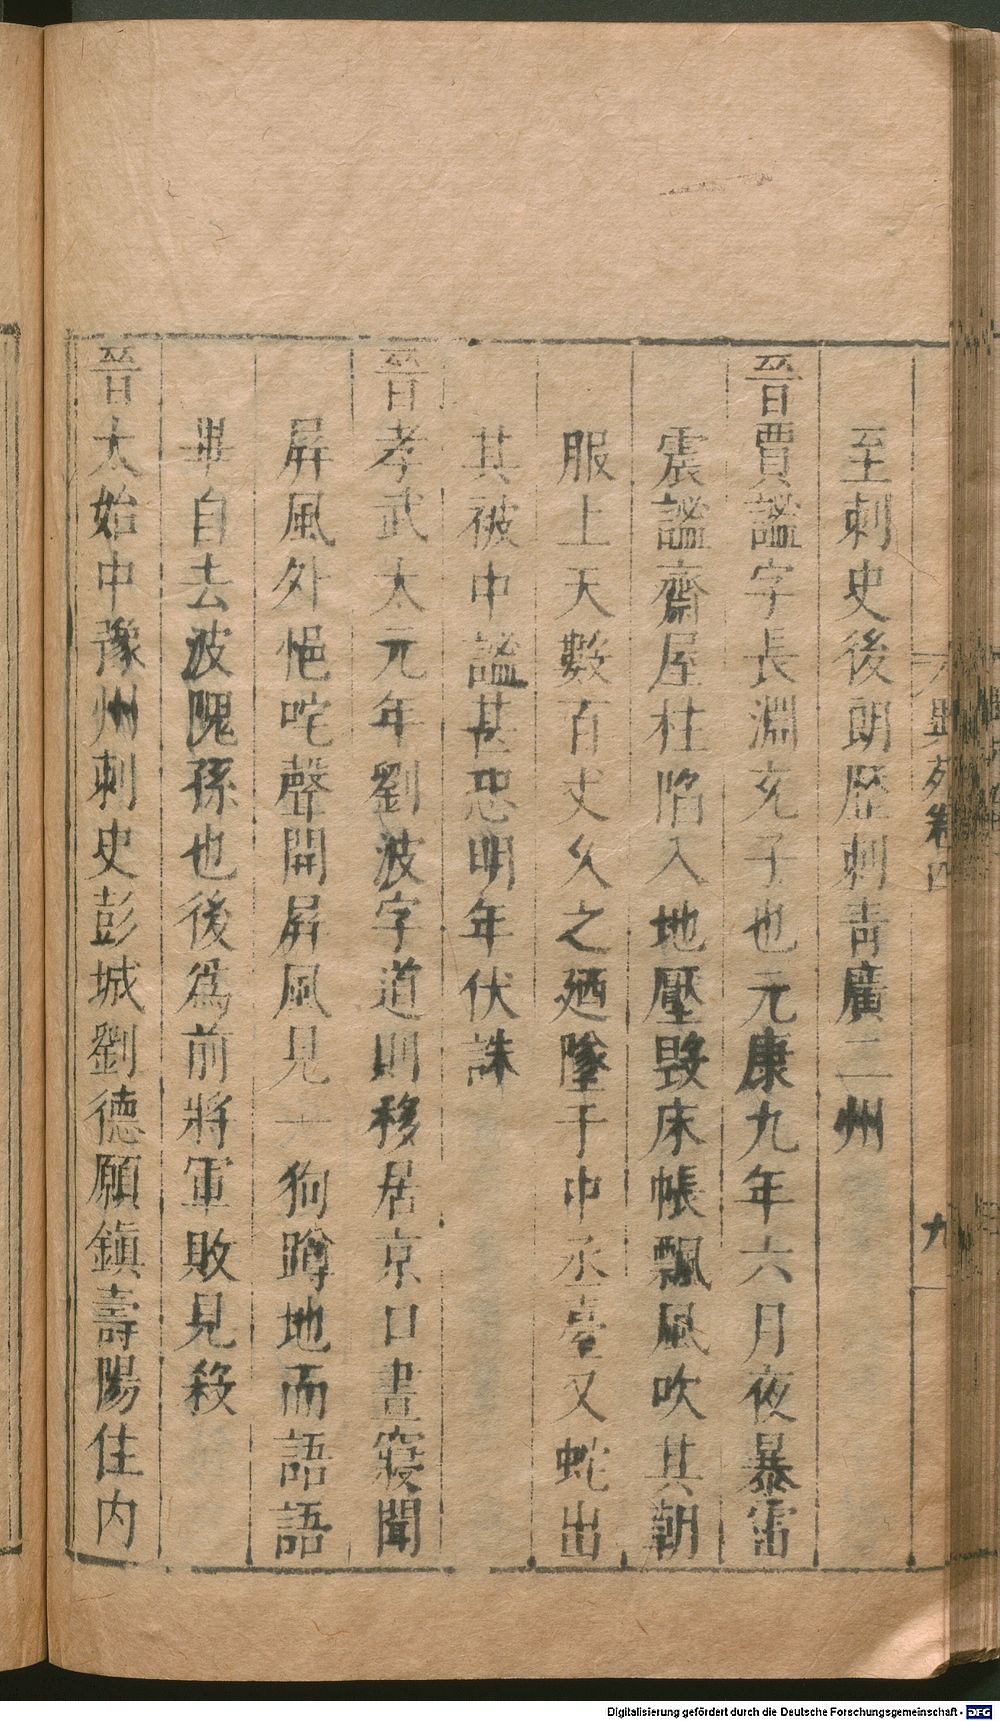 至刺史後朗歷刺青廣二州
晉賈謐字長淵充子也元康九年六月夜暴雷
震謐齋屋柱陷入地壓毀床帳飄風吹其朝
服上天數百丈久之廼墜于中丞臺又蛇出
其被中謐甚恐明年伏誅
晉孝武太元年劉波字道則移居京口晝寢聞
屏風外悒咤聲開屏風見一狗蹲地而語語
畢自去波隗孫也後爲前將軍敗見殺
晉太始中豫州刺史彭城劉德願鎮壽陽住内
異苑卷四
九
Digitalisierung gefördert durch die Deutsche Forschungsgemeinschaft - DFG